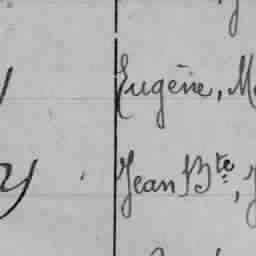 Eugène, M
Jean Bte, J